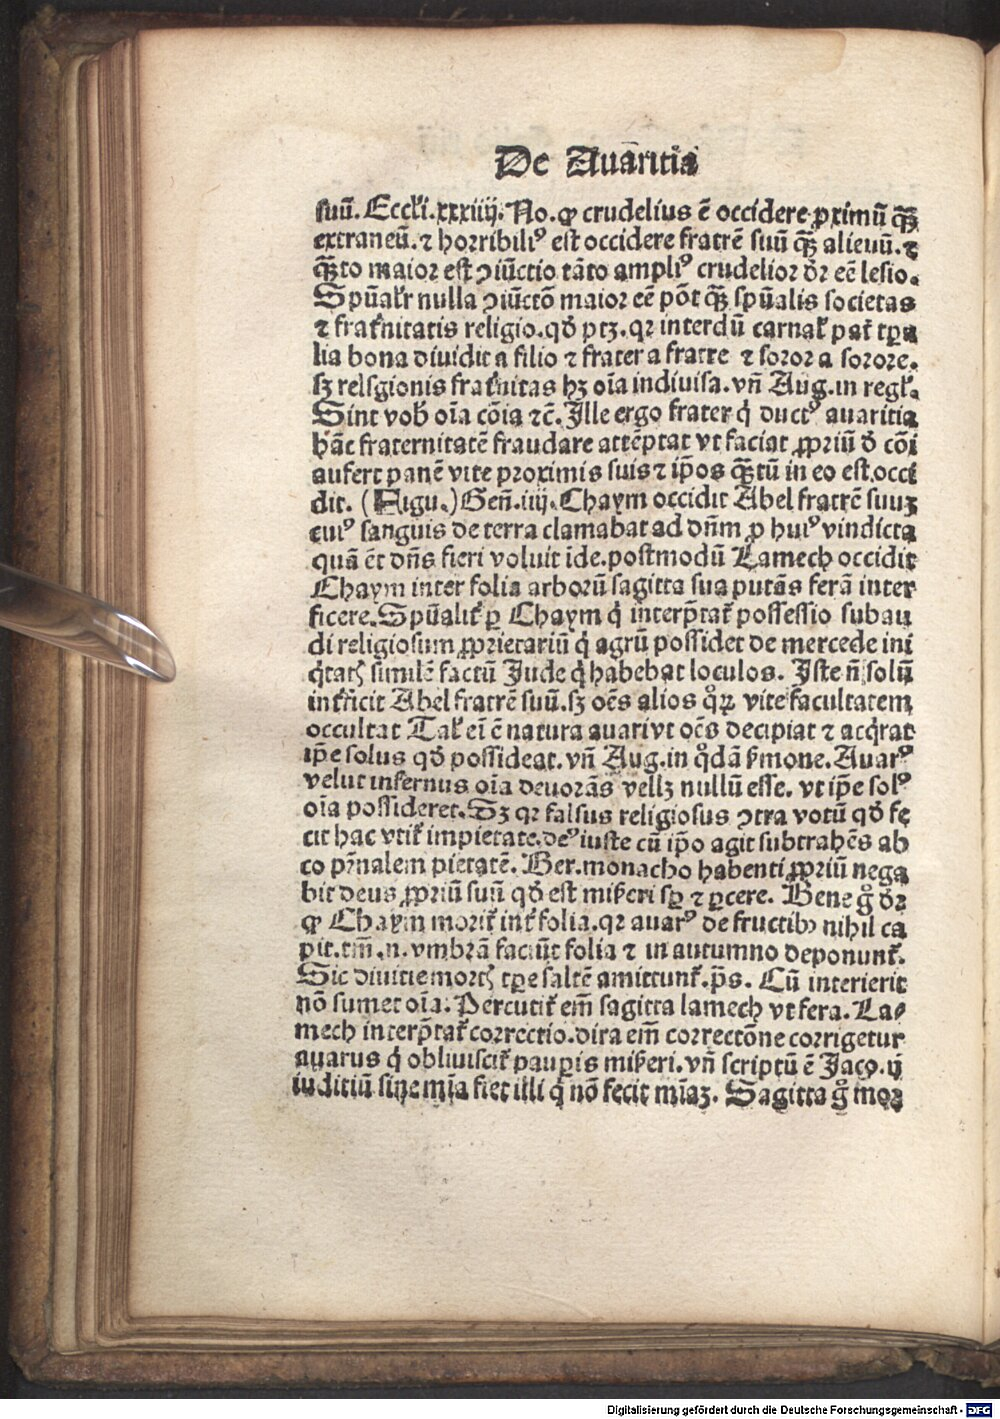 De Auaritia
suū. Eccl'i. xxxiiij. No. ꝙ crudelius ē occidere proximū q̄ꝫ
extraneū. ⁊ horribiliꝰ est occidere fratrē suū q̄ꝫ alienū. ⁊
q̄ꝫto maior est ↄiūctio tāto ampliꝰ crudelior dr̄ eē lesio.
Spūalr̄ nulla ↄiūctō maior eē pōt q̄ꝫ spūalis societas
⁊ frat̄nitatis religio. qđ ptꝫ. qr interdū carnal' pat̄ tꝑa
lia bona diuidit a filio ⁊ frater a fratre ⁊ soror a sorore.
sꝫ relsgionis frat̄nitas hꝫ oīa indiuisa. vn̄ Aug. in regl'.
Sint vob̄ oīa cōia ⁊c̄. Ille ergo frater q̇ ductꝰ auaritia
hāc fraternitatē fraudare attēptat vt faciat ꝓpriū đ cōi
aufert panē vite proximis suis ⁊ ip̄os q̄ꝫtū in eo est. occi
dit. (Figu.) Gen̄. iiij. Chaym occidit Abel fratrē suuꝫ
cuiꝰ sanguis de terra clamabat ad dn̄m ꝓ huiꝰ vindicta
quā ēt dn̄s fieri voluit īde. postmodū Lamech occidit
Chaym inter folia arborū sagitta sua putās ferā inter
ficere. Spūalit̄ ꝑ Chaym q̇ interp̄tat̄ possessio subau
di religiosum ꝓprietariū q̇ agrū possidet de mercede ini
q̇tatꝭ similē factū Iude q̇ habebat loculos. Iste n̄ solū
interficit Abel fratrē suū. sꝫ oēs alios qͦꝝ vite facultatem
occultat Tal' ei̅ ē natura auari vt oēs decipiat ⁊ acq̇rat
ip̄e solus qđ possideat. vn̄ Aug. in qͦdā s̄mone. Auarꝰ
velut infernus oīa deuorās vellꝫ nullū esse. vt ip̄e solꝰ
oīa possideret. Sꝫ qr falsus religiosus ↄtra votū qđ fe
cit hac vtit̄ impietate. deꝰ iuste cū ip̄o agit subtrahēs ab
eo p̄rnalem pietatē. Ber. monacho habenti ꝓpriū nega
bit deus ꝓpriū suū qđ est mis̄eri sꝑ ⁊ ꝑcere. Bene gͦ dr̄
ꝙ Chaym morit̄ int̄ folia. qr auarꝰ de fructibꝰ nihil ca
pit. tm̄. n. vmbrā faciūt folia ⁊ in autumno deponunt̄.
Sic diuitie mortꝭ tꝑe saltē amittunt̄. p̄s. Cū interierit
nō sumet oīa. Percutit̄ em̄ sagitta lamech vt fera. La-
mech interp̄tat̄ correctio. dira em̄ correctōne corrigetur
auarus q̇ obliuiscit̄ pauꝑis mis̄eri. vn̄ scriptū ē Jaco. ij
iuditiū sine mīa fiet illi q̇ nō fecit mīaꝫ. Sagitta gͦ mor
Digitalisierung gefördert durch die Deutsche Forschungsgemeinschaft - DFG